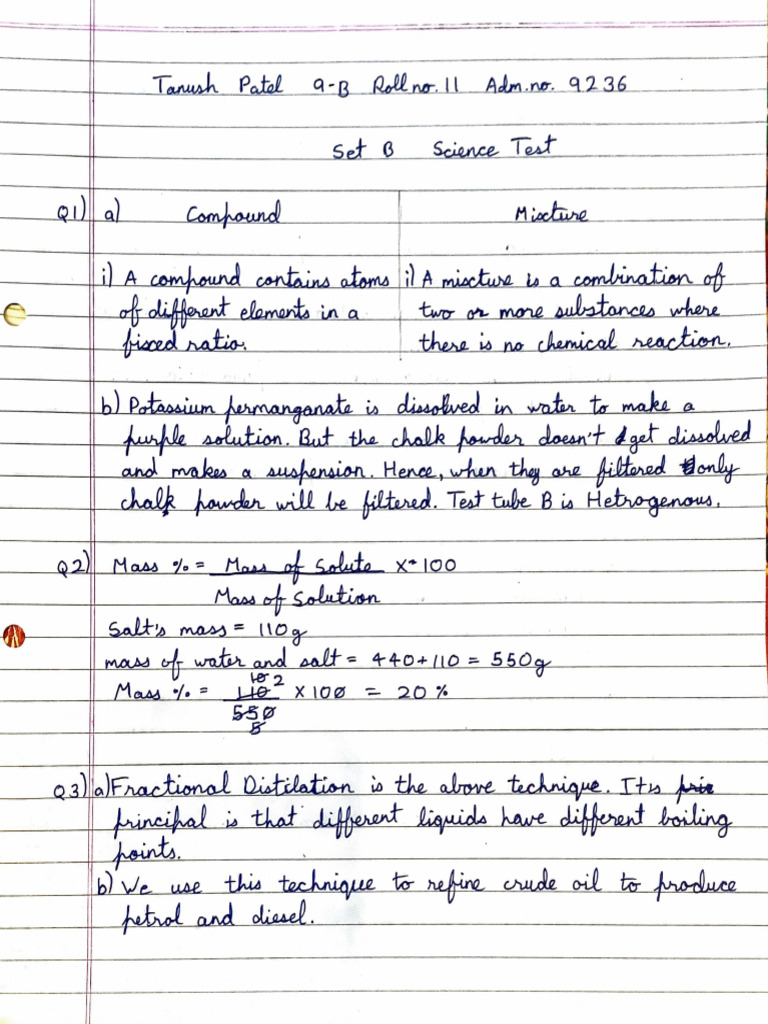 Tanush Patel 9-B Roll no. 11 Adm.no. 9236
Set B Science Test
Q1) a) Compound Mixture
i) A compound contains atoms i) A mixture is a combination of
of different elements in a two or more substances where
fixed ratio. there is no chemical reaction.
b) Potassium permanganate is dissolved in water to make a
purple solution. But the chalk powder doesn't get dissolved
and makes a suspension. Hence, when they are filtered only
chalk powder will be filtered. Test tube B is Hetrogenous.
Q2) Mass % = Mass of Solute x 100
Mass of Solution
Salt's mass = 110g
mass of water and salt = 440+110 = 550g
10 2
Mass % = 110 x 100 = 20 %
550
5
Q3) a) Fractional Distilation is the above technique. Itis
principal is that different liquids have different boiling
points.
b) We use this technique to refine crude oil to produce
petrol and diesel.